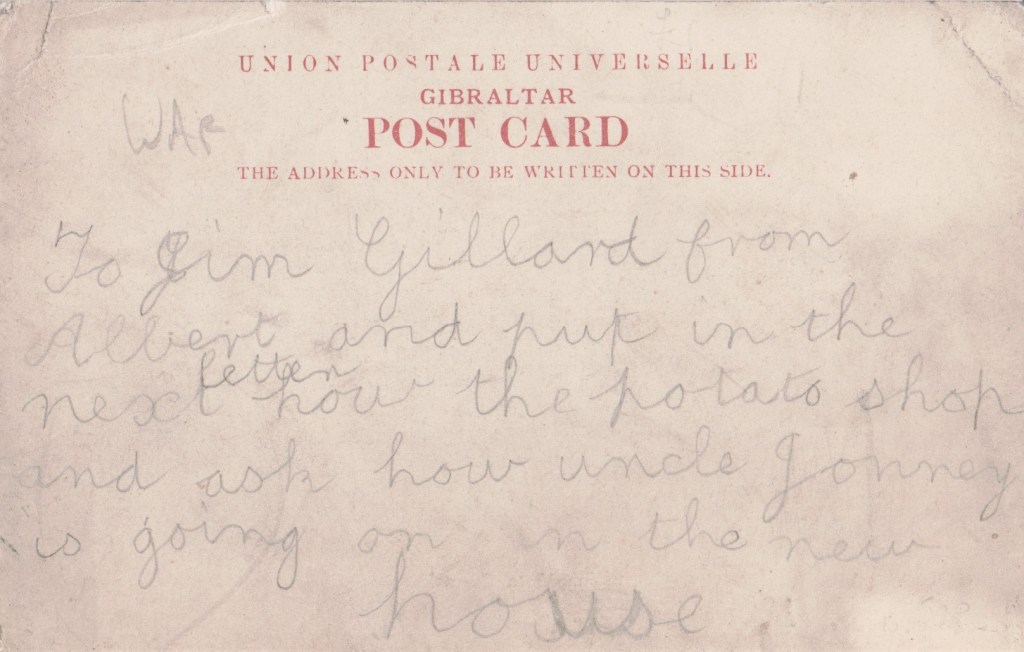 UNION POSTALE UNIVERSELLE
GIBRALTAR
POST CARD
THE ADDRESS ONLY TO BE WRITTEN ON THIS SIDE.
WAR
To Jim Gillard from
Albert and put in the
letter
next how the potato shop
and ask how uncle Jonney
is going on in the new
house